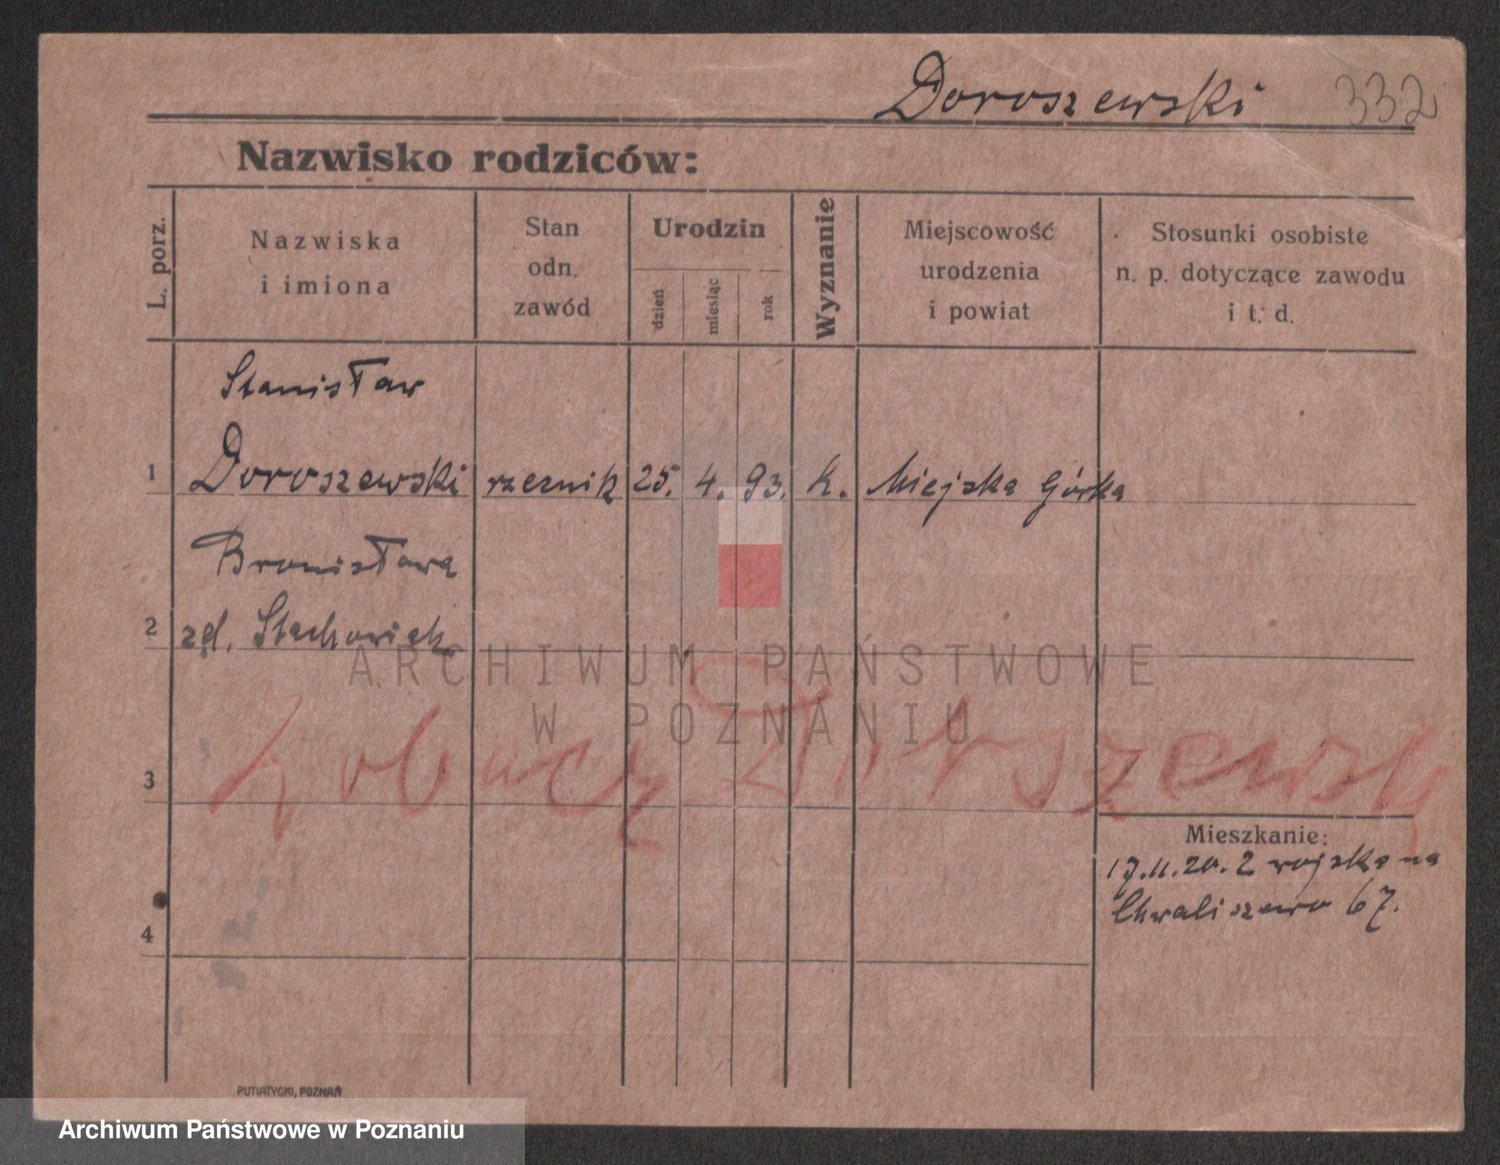 Doroszewski 332
Nazwisko rodziców:
L. porz.
Nazwiska
i imiona
Stan
odn.
zawód
Urodzin
dzień
miesiąc
rok
Wyznanie
Miejscowość
urodzenia
i powiat
Stosunki osobiste
n. p. dotyczące zawodu
i t. d.
Stanisław
1 Doroszewski rzeznik 25. 4. 93. k. Miejska Górka
Bronisława
2 Stachowiak
ARCHIWUM PAŃSTWOWE
W POZNANIU
3 Zobacz Dorszewski
Mieszkanie:
17.11.20. Z wojska na
Chwaliszewo 67.
4
PUTIATYCKI, POZNAŃ
Archiwum Państwowe w Poznaniu